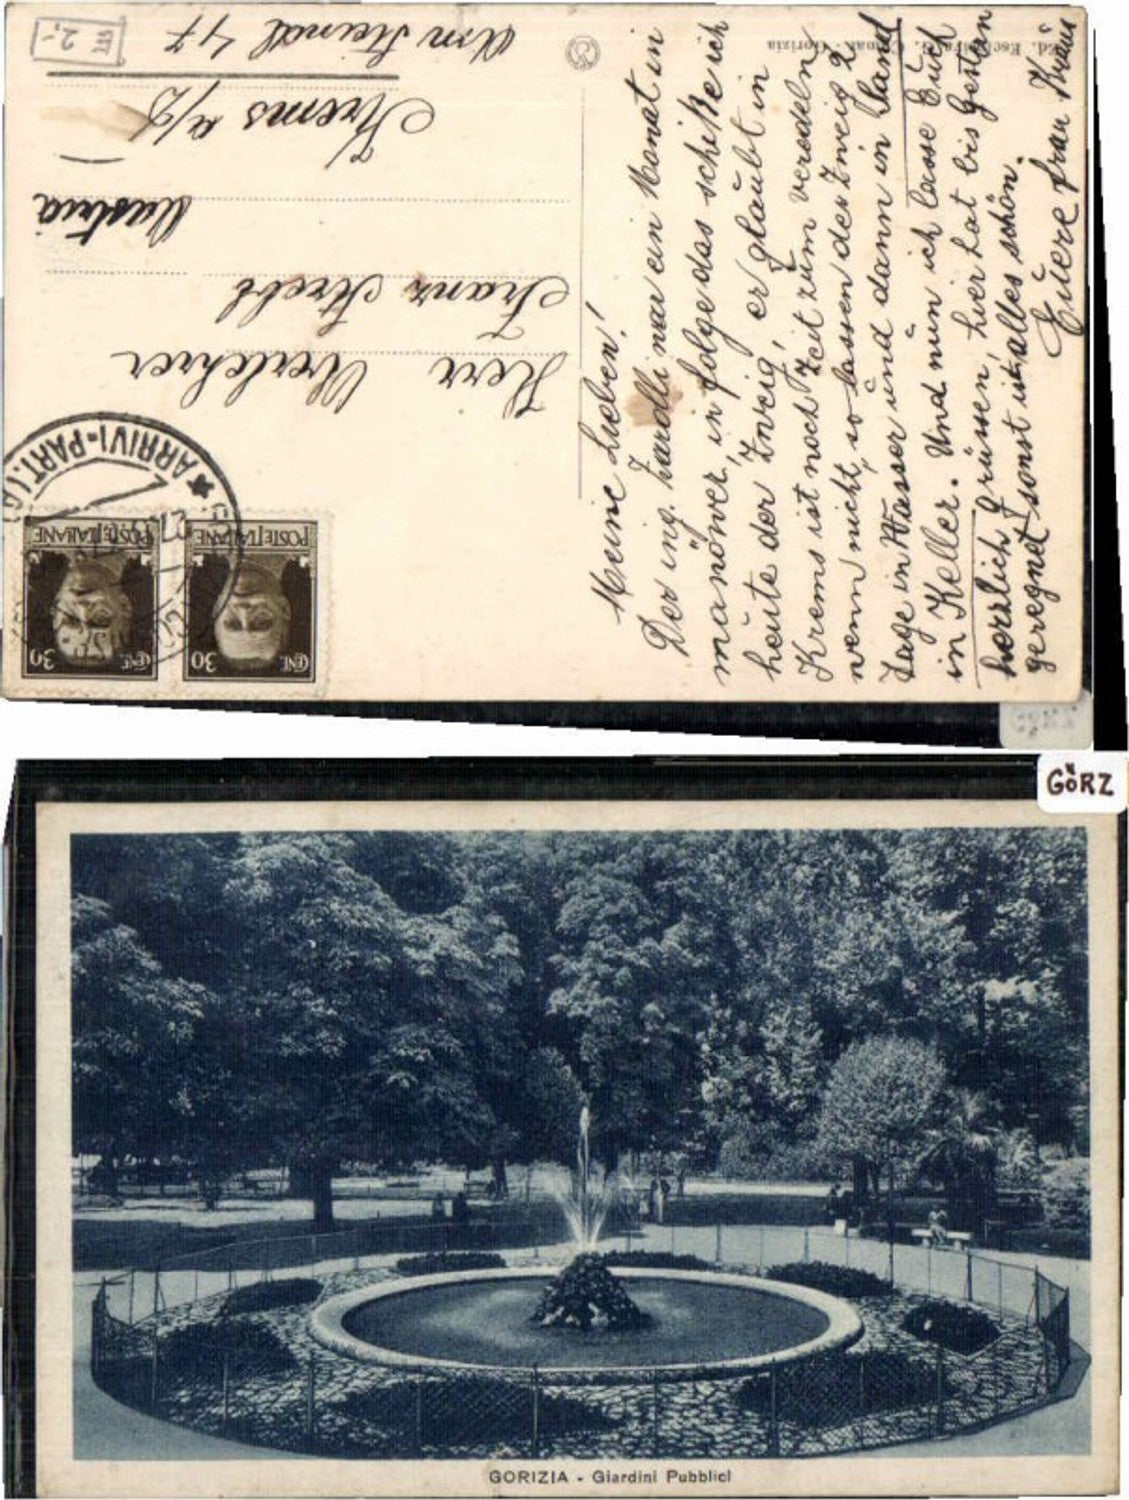 Meine Lieben!
Der ing. Zardli nur ein Monat in
manöver, in folge das schicke ich
heute der Zweig, er glaubt in
Krems ist noch Zeit zum veredeln
wenn nicht, so lassen der Zweig 2
Tage in Wasser und dann in Sand
in Keller. Und nun ich lasse Euch
herzlich grüssen, hier hat bis Gestern
geregnet sonst ist alles schön.
Euere frau Kraus
Herr
Franz Strebl
Austria
Krems a/D
47
2,-
Gorizia
ARRIVI-PART.
POSTE ITALIANE
CENT. 30
POSTE ITALIANE
CENT. 30
GÖRZ
GORIZIA - Giardini Pubblici